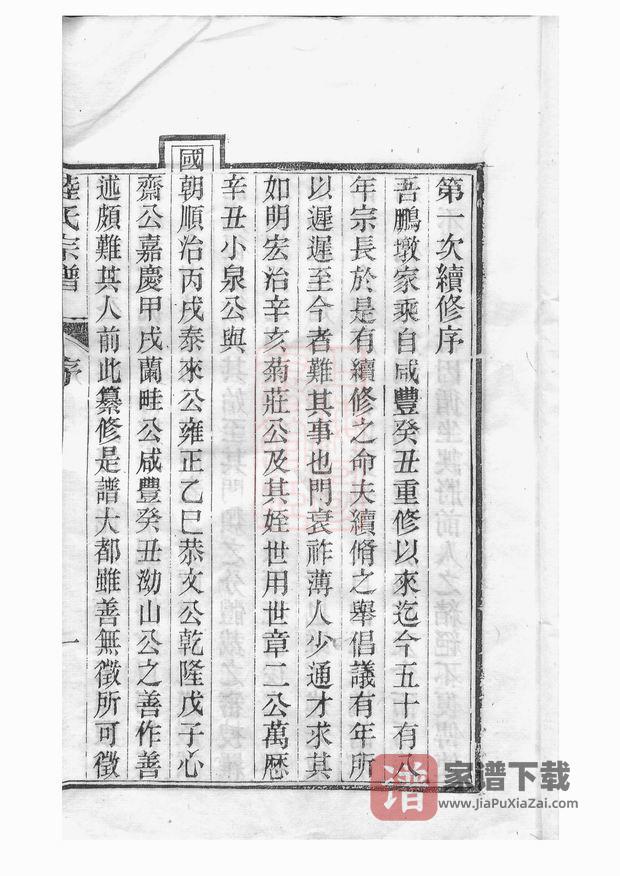 第一次續修序
吾鵬墩家乘自咸豐癸丑重修以來迄今五十有八
年宗長於是有續修之命夫續脩之舉倡議有年所
以遲遲至今者難其事也門衰祚薄人少通才求其
如明宏治辛亥菊莊公及其姪世用世章二公萬厯
辛丑小泉公與
國朝順治丙戌泰來公雍正乙巳恭文公乾隆戊子心
齋公嘉慶甲戌蘭畦公咸豐癸丑泑山公之善作善
述頗難其人前此纂修是譜大都雖善無徵所可徵
陸氏宗譜 序 一
譜 家谱下载
www.JiaPuXiaZai.com